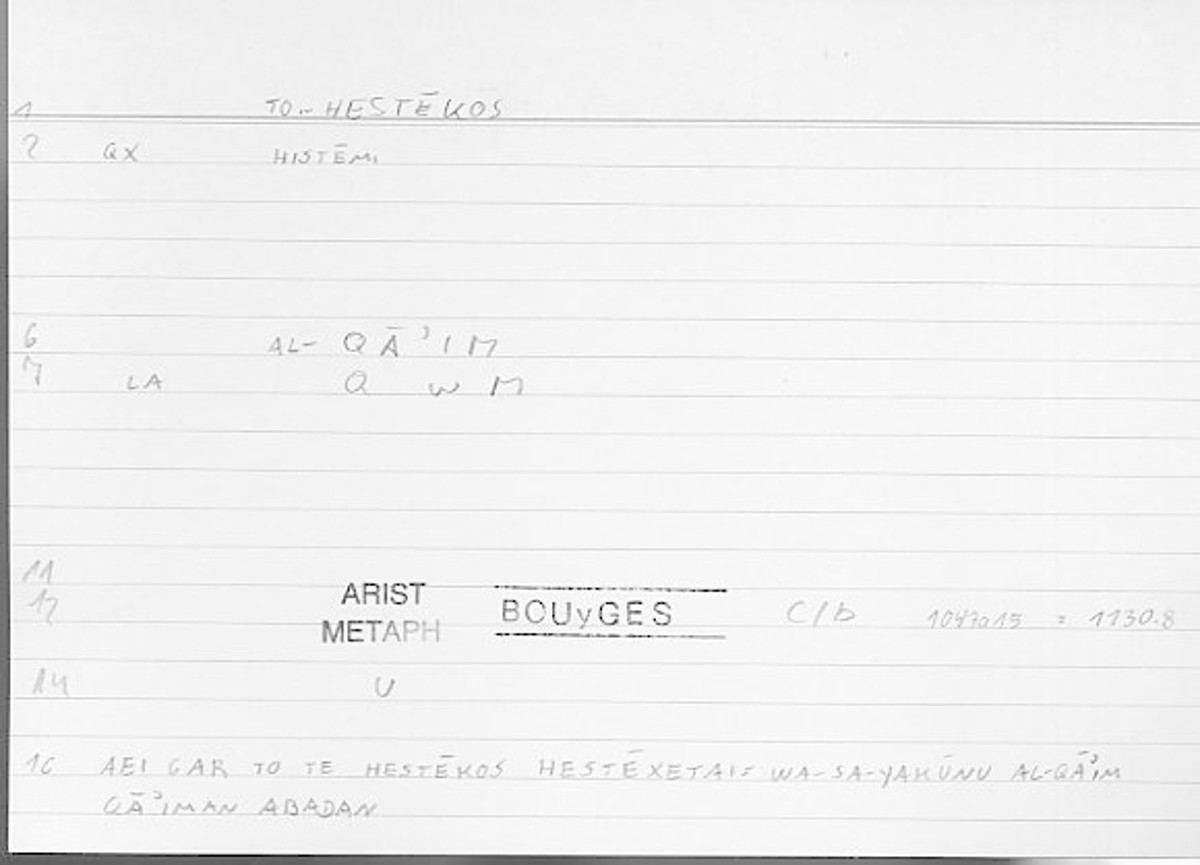 1 TO.- HESTĒKOS
2 QX HISTĒMI
6 AL- QĀʾIM
7 LA Q W M
11
12 ARIST METAPH BOUyGES C/b 1047a15 = 1130.8
14 U
16 AEI GAR TO TE HESTĒKOS HESTĒXETAI = WA-SA-YAKŪNU AL-QĀʾIM
QĀʾIMAN ABADAN